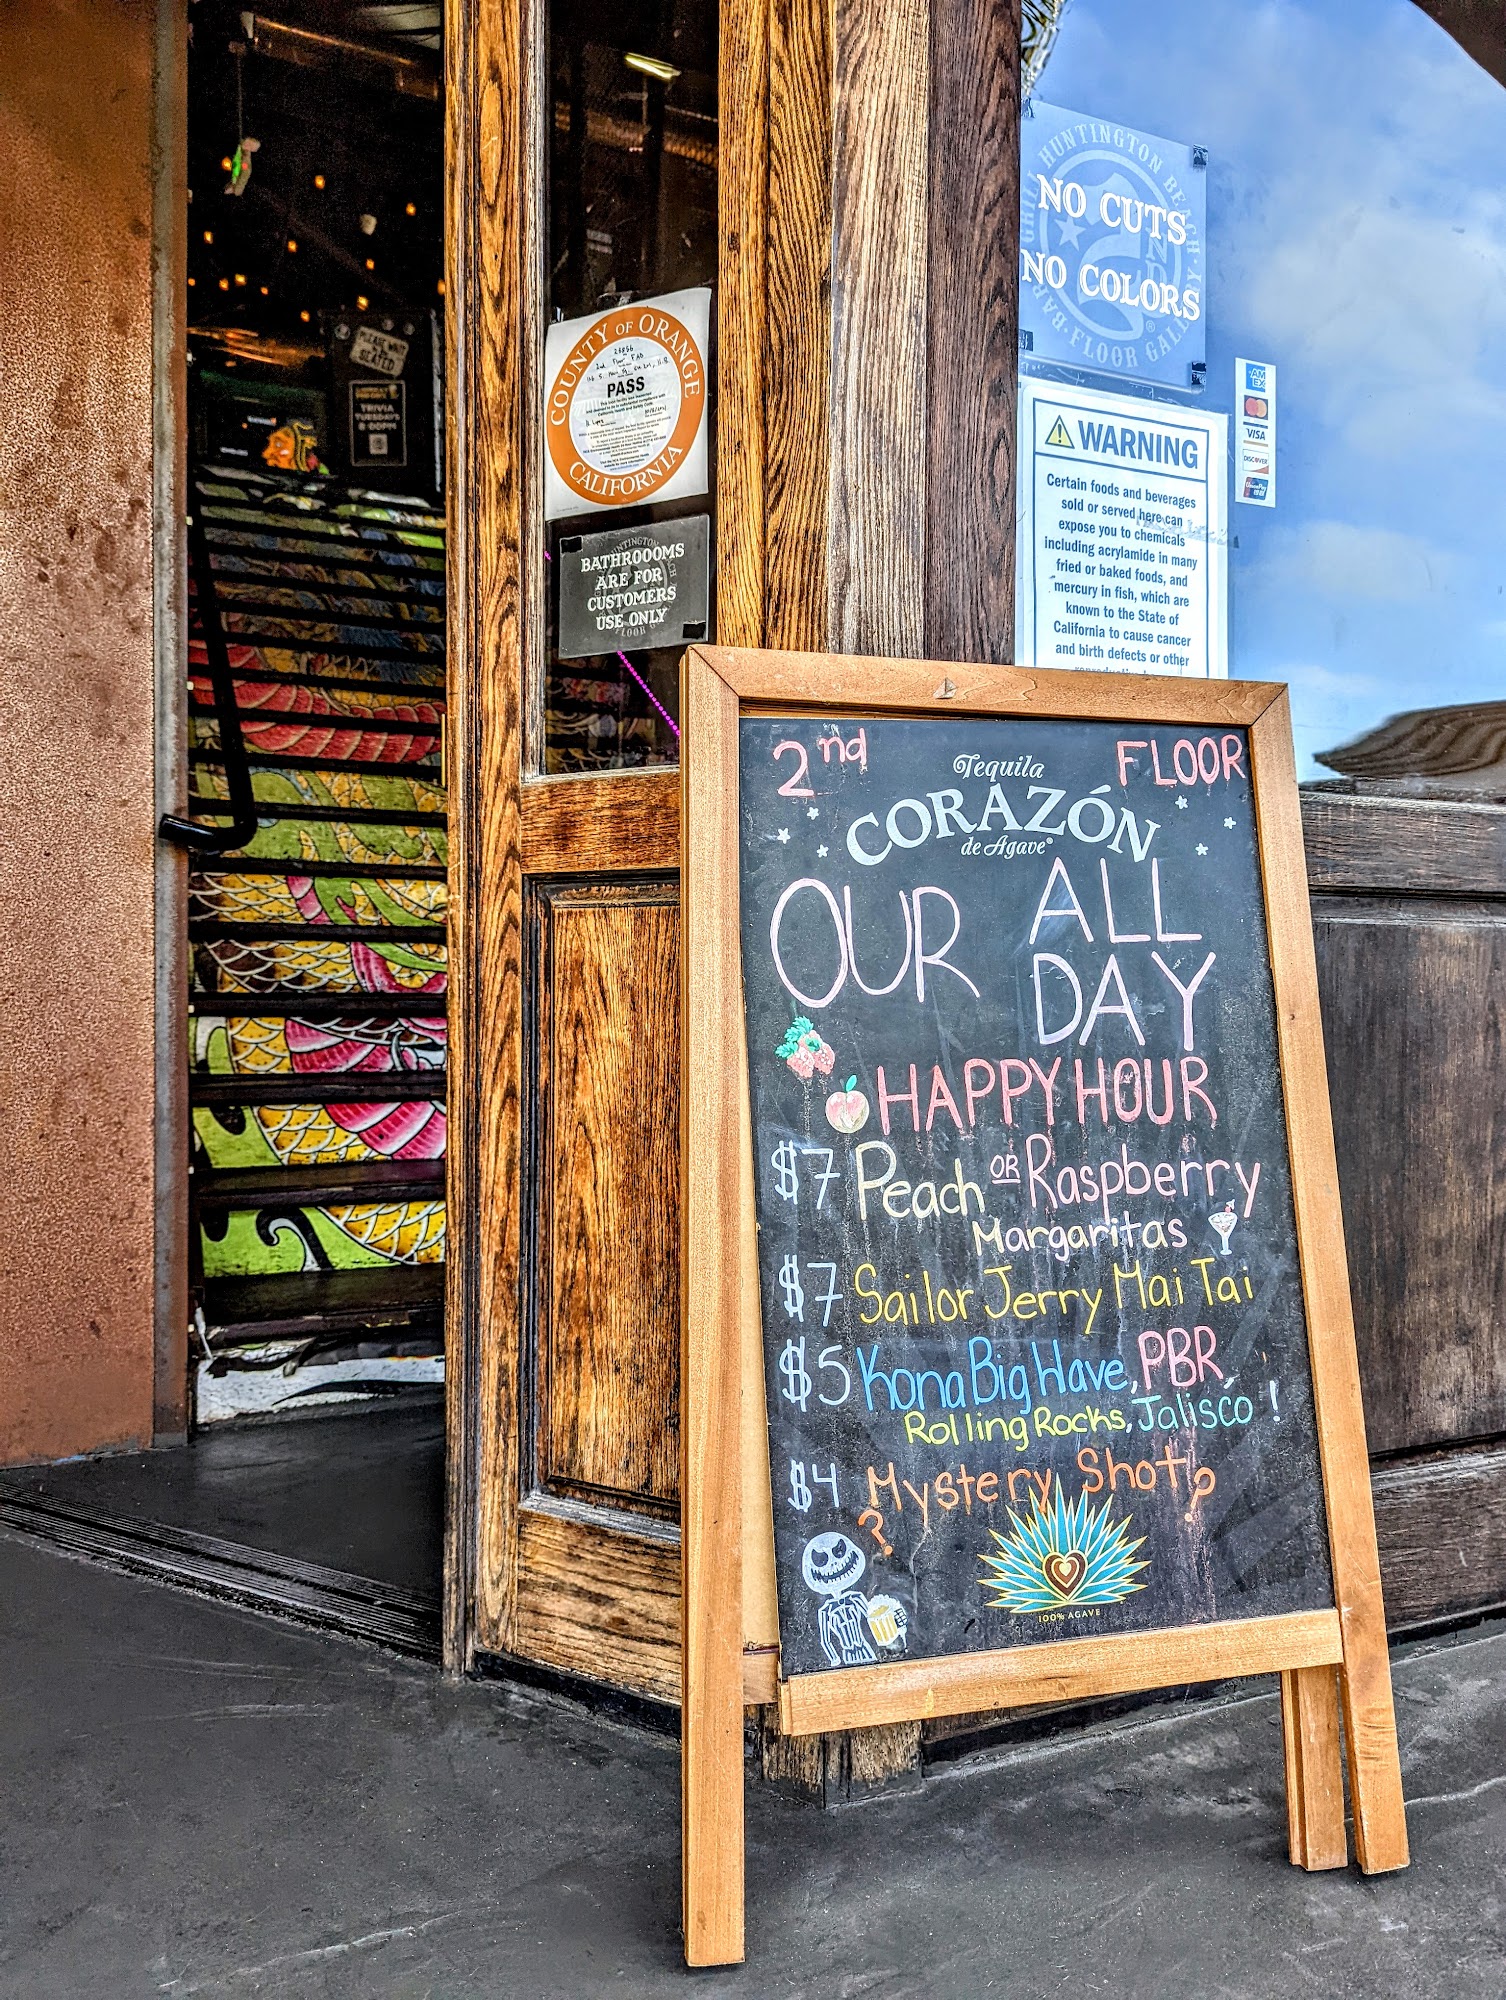 PLEASE WAIT
SEATED
TRIVIA
TUESDAYS
8:00PM
COUNTY OF ORANGE
PASS
CALIFORNIA
BATHROOOMS
ARE FOR
CUSTOMERS
USE ONLY
HUNTINGTON BEACH
NO CUTS
NO COLORS
BAR GRILL
AND
FLOOR GALLERY
AM
EX
VISA
DISCOVER
WARNING
Certain foods and beverages
sold or served here can
expose you to chemicals
including acrylamide in many
fried or baked foods, and
mercury in fish, which are
known to the State of
California to cause cancer
and birth defects or other
2nd FLOOR
Tequila
CORAZÓN
de Agave®
OUR ALL
DAY
HAPPY HOUR
$7 Peach OR Raspberry
Margaritas
$7 Sailor Jerry Mai Tai
$5 Kona Big Wave, PBR,
Rolling Rocks, Jalisco !
$4 Mystery Shot?
?
100% AGAVE